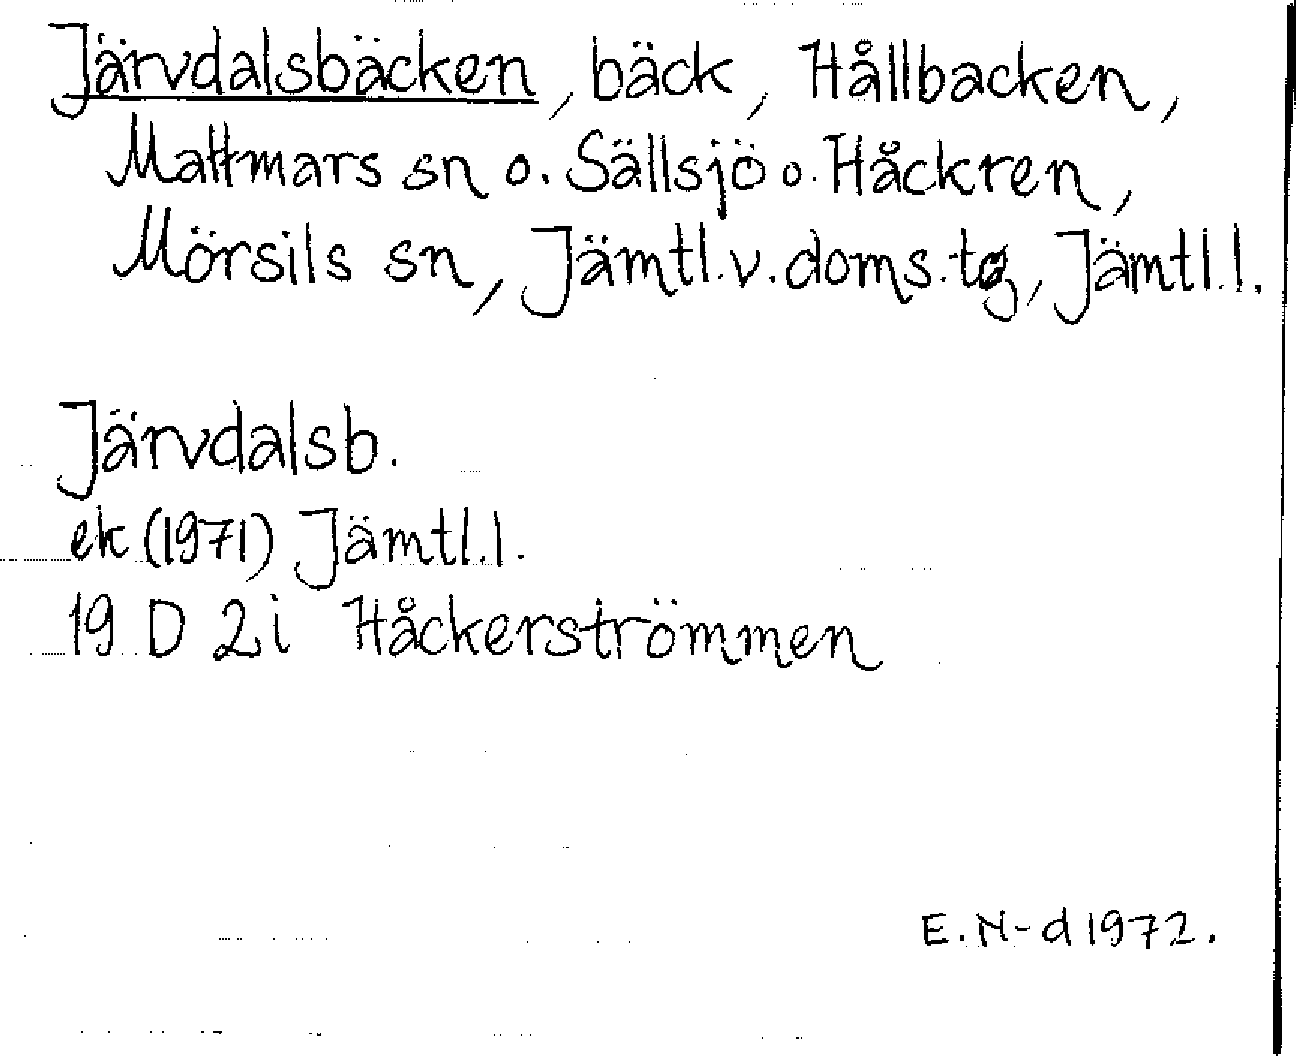 Järvdalsbäcken, bäck, Hållbacken,
Mattmars sn o. Sällsjö o. Håckren,
Mörsils sn, Jämtl.v.doms.tg, Jämtl.l.
Järvdalsb.
ek (1971) Jämtl.l.
19 D 2i Håckerströmmen
E.N-d 1972.